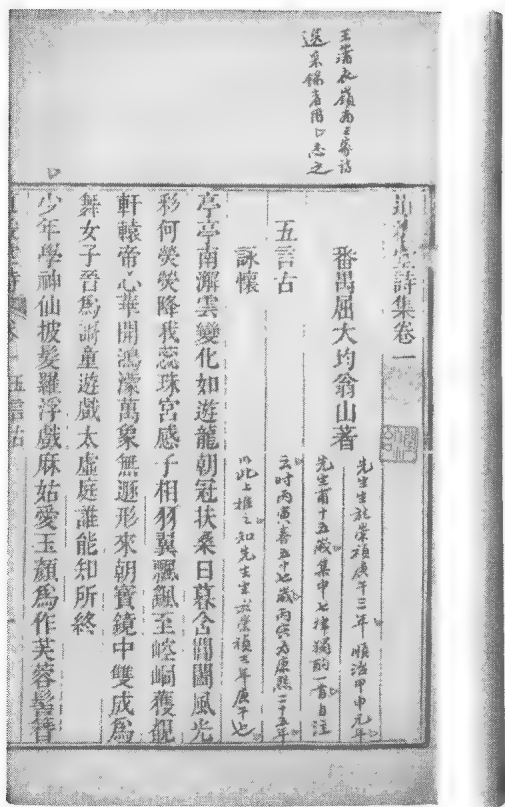 王蒲衣嶺南三家詩
選采錄者用□志之
道援堂詩集卷一
番禺屈大均翁山著
先生生於崇禎庚午三年順治甲申元年
先生甫十五歲集中七律獨酌一首自注
云时丙寅春五十七歲丙寅为康熙二十五年
以此上推之知先生生於崇禎三年庚午也
五言古
詠懷
亭亭南澥雲變化如遊龍朝冠扶桑日暮含閶闔風光
彩何熒熒降我蕊珠宮感子相羽翼飄飄至崆峒獲覩
軒轅帝心華開鴻濛萬象無遯形來朝寶鏡中雙成爲
舞女子晉爲謌童遊戲太虛庭誰能知所終
□少年學神仙披髮羅浮戲麻姑愛玉顏爲作芙蓉髻簪
五言古